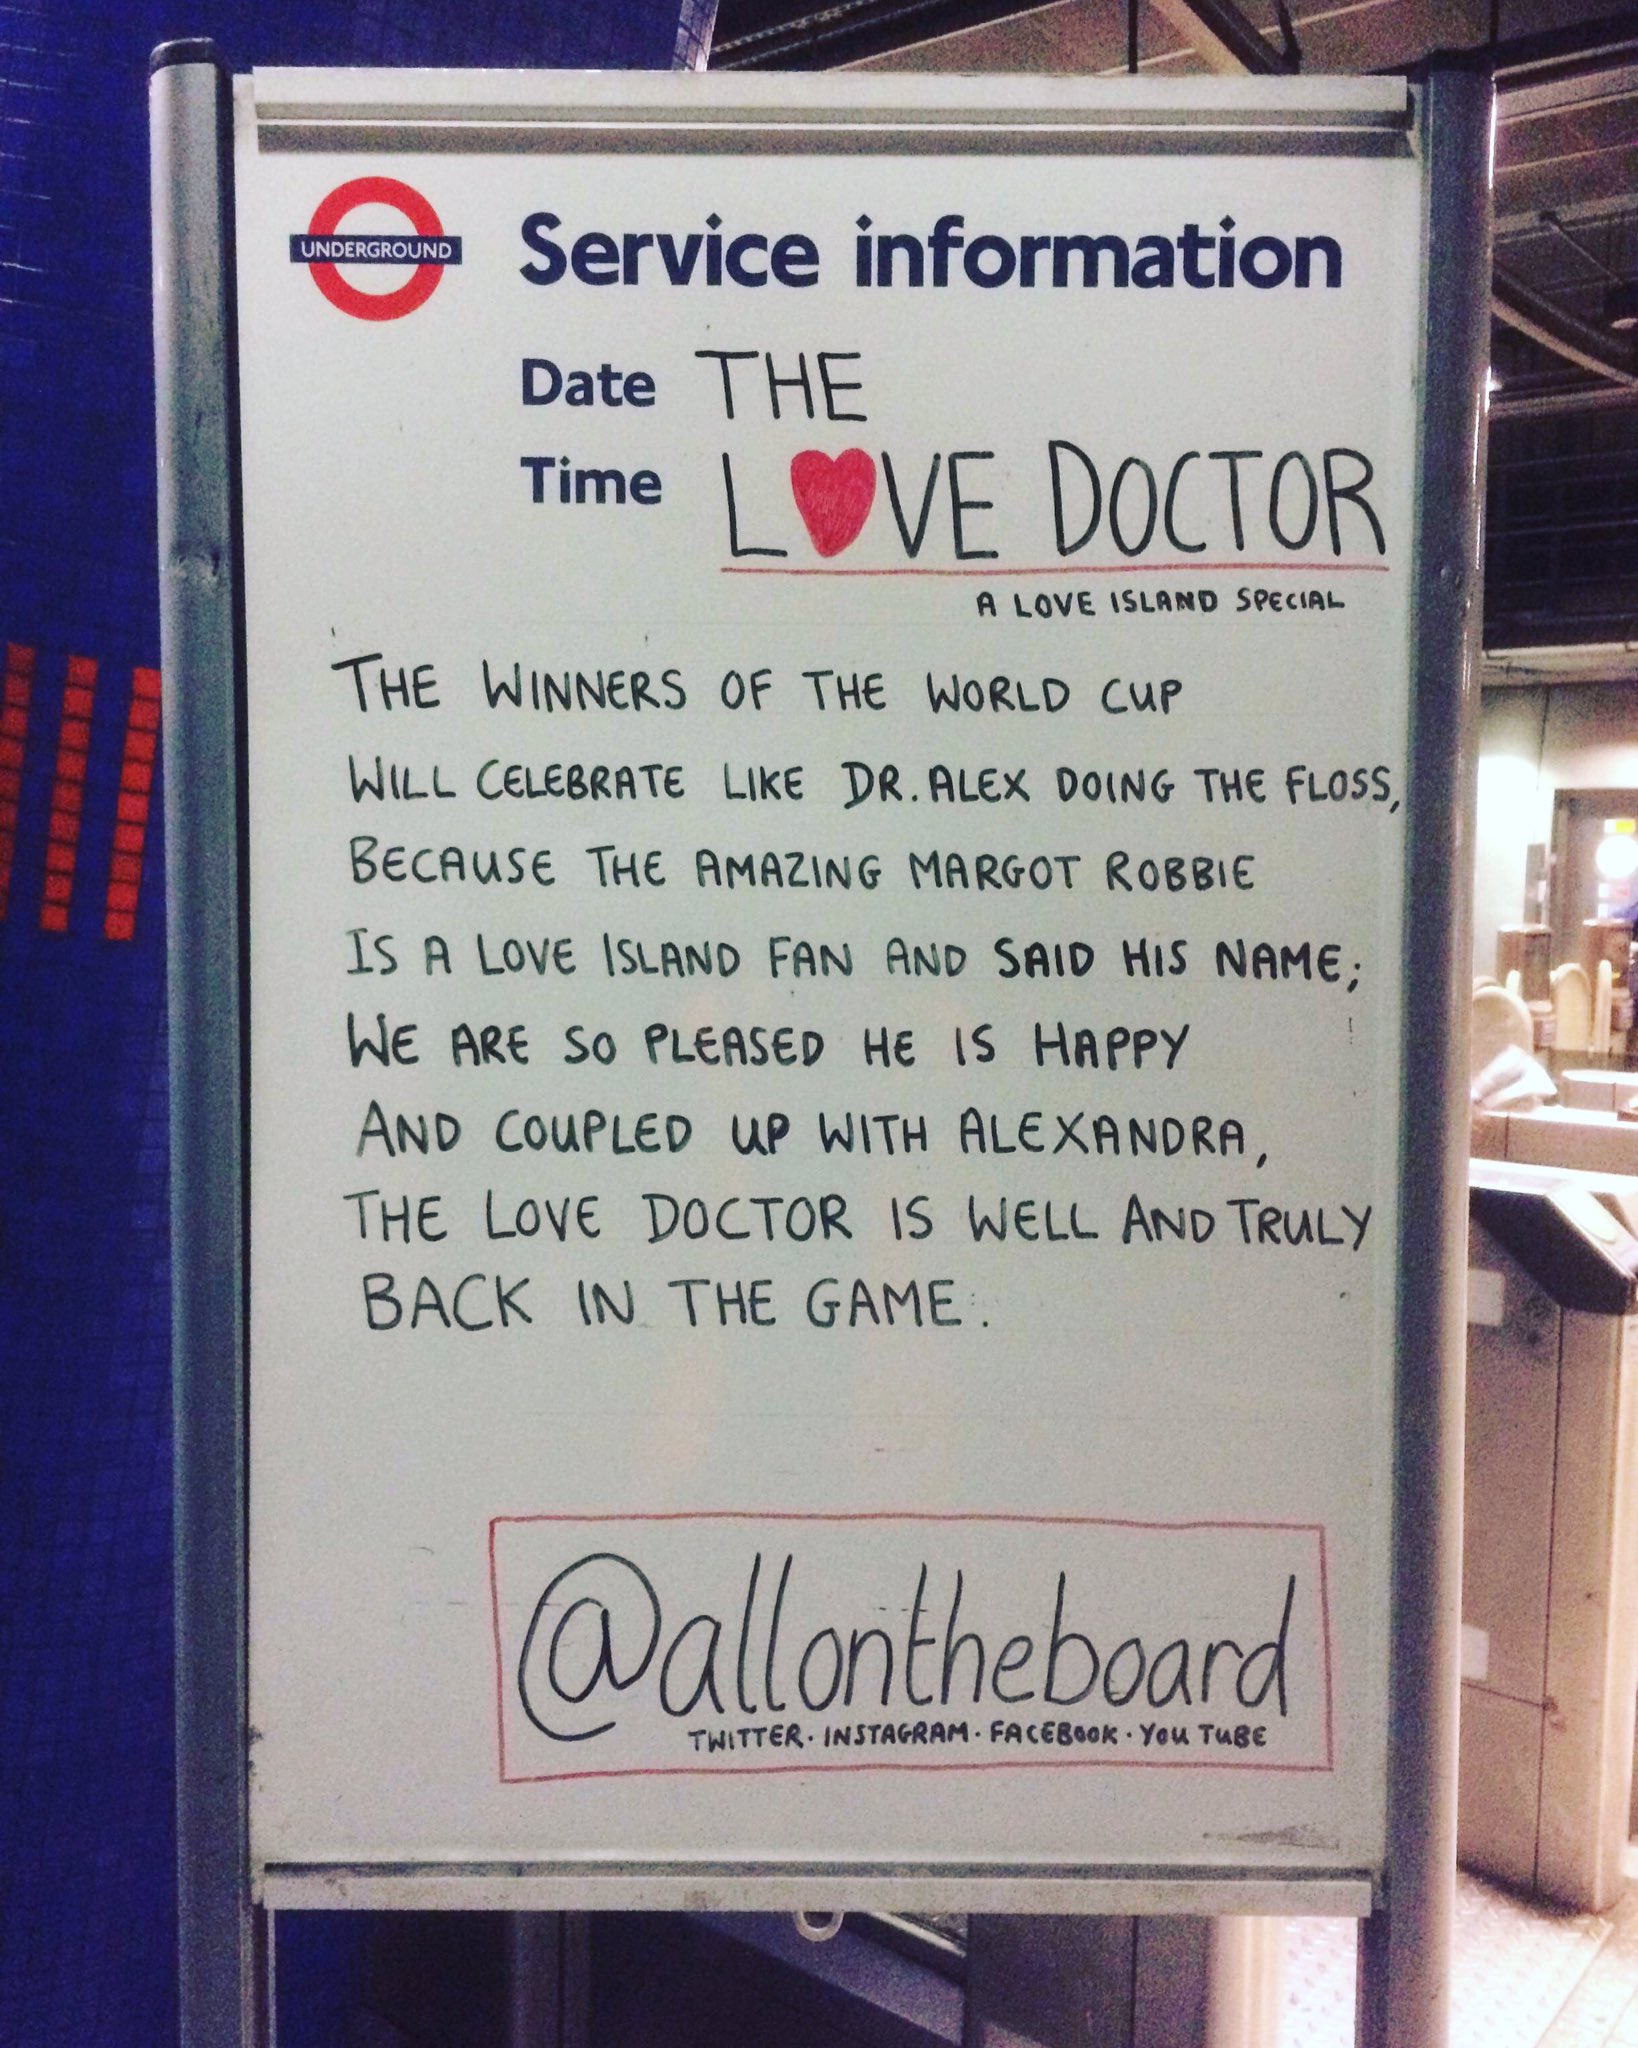 UNDERGROUND
Service information
Date THE
Time L❤VE DOCTOR
A LOVE ISLAND SPECIAL
THE WINNERS OF THE WORLD CUP
WILL CELEBRATE LIKE DR. ALEX DOING THE FLOSS,
BECAUSE THE AMAZING MARGOT ROBBIE
IS A LOVE ISLAND FAN AND SAID HIS NAME;
WE ARE SO PLEASED HE IS HAPPY
AND COUPLED UP WITH ALEXANDRA,
THE LOVE DOCTOR IS WELL AND TRULY
BACK IN THE GAME.
@allontheboard
TWITTER · INSTAGRAM · FACEBOOK · YOU TUBE